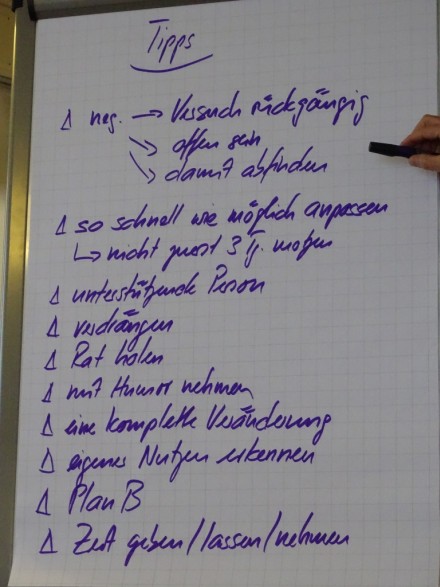 Tipps
Δ neg. → Versuch rückgängig
↘ offen sein
↘ damit abfinden
Δ so schnell wie möglich anpassen
↳ nicht zuerst 3 Tg. motzen
Δ unterstützende Person
Δ verdrängen
Δ Rat holen
Δ mit Humor nehmen
Δ eine komplette Veränderung
Δ eigenes Nutzen erkennen
Δ Plan B
Δ Zeit geben/lassen/nehmen